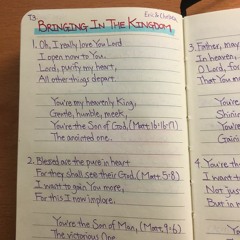 T3
Eric & Chelsea
BRINGING IN THE KINGDOM
1. Oh, I really love You Lord
I open now to You.
Lord, purify my heart,
All other things depart.
You're my heavenly King,
Gentle, humble, meek,
You're the Son of God, (Matt. 16:16-17)
The anointed one.
2. Blessed are the pure in heart
For they shall see their God. (Matt. 5:8)
I want to gain You more,
For this I now implore.
You're the Son of Man, (Matt. 9:6)
The victorious One
3. Father, may
In heaven,
O Lord, fo
That You m
You're
Shini
You're
Gaini
4. You're th
I want t
Not jus
But in